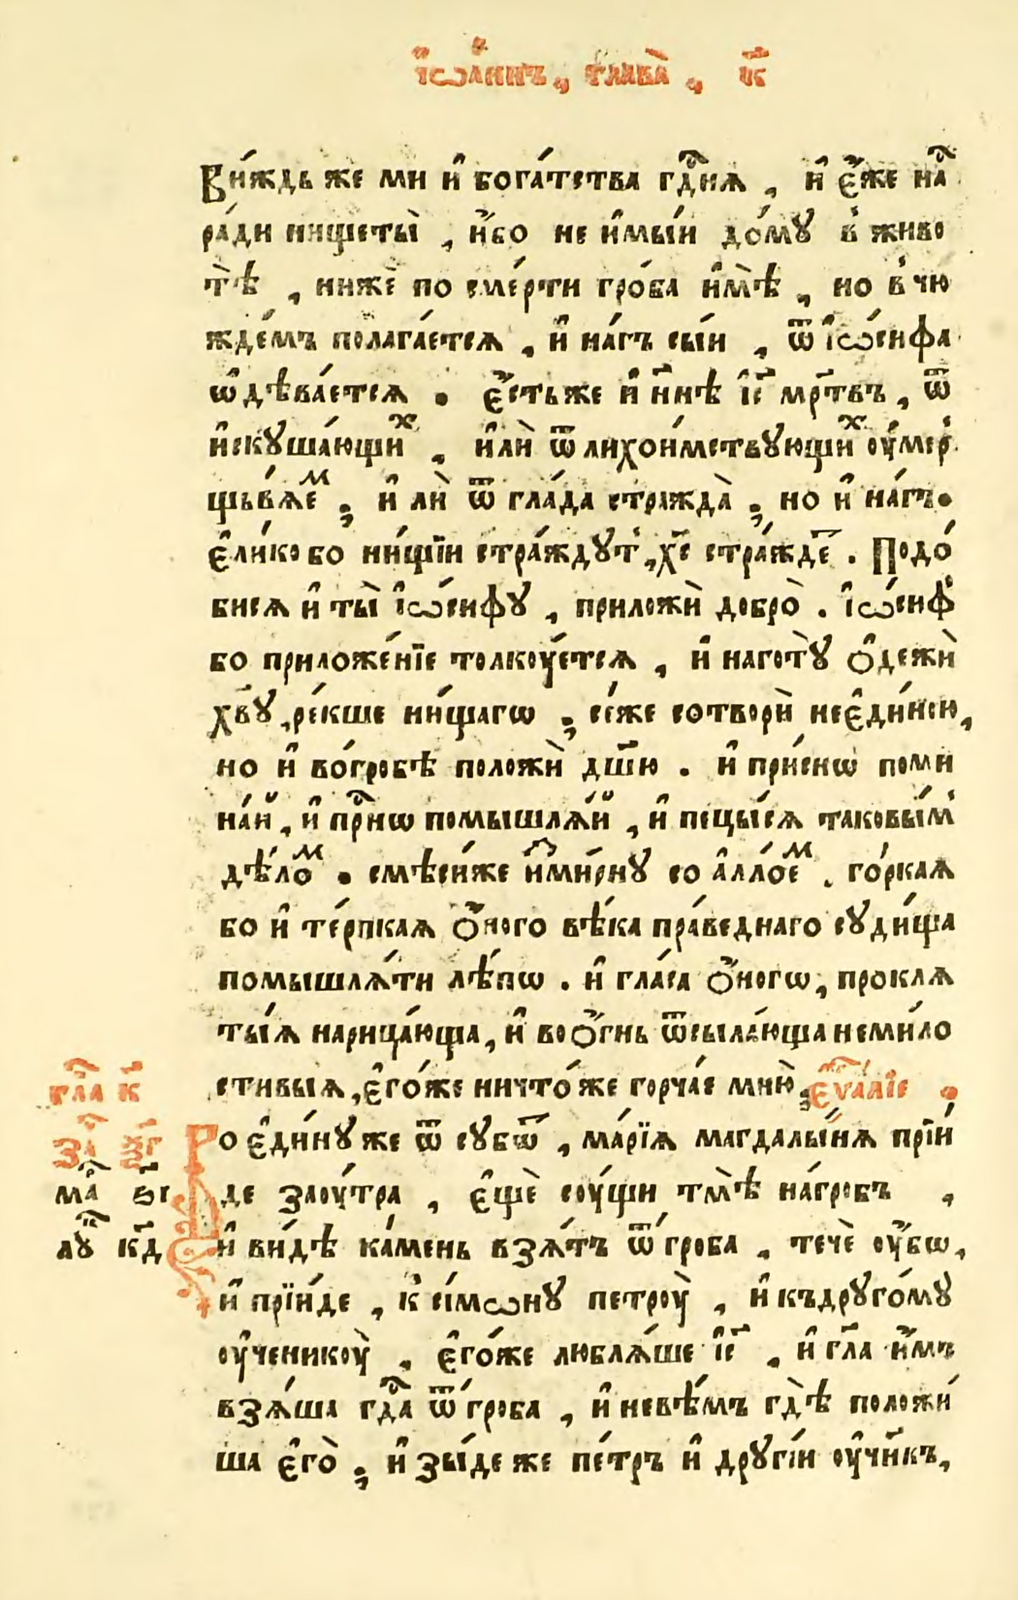 і҆ѡа́ннъ, глава̀, к҃
Ви́ждь же ми и҆ бога́тства гдⷭ҇ня, и҆ є҆́же на́съ
ра́ди нищеты̀, и҆́бо не и҆мы́и до́му в живо
тѣ̀, нижѐ по сме́рти гро́ба и҆мѣ̀, но в чю
жде́мъ полага́ется, и҆ на́гъ сы́и, ѿ і҆ѡ́сифа
ѡ҆дѣва́ется. є҆́сть же и҆ нн҃ѣ і҆с҃ мр҃твъ, ѿ
и҆скуша́ющиⷯ, и҆лѝ ѿ лихои́мствующиⷯ оу҆мер
щьвля́еⷨ, и҆ лѝ ѿ гла́да стражда̀, но и҆ на́гъ.
є҆ли́ко бо ни́щїи стра́ждут, хс҃ стра́жде. Подо́
бися и҆ ты̀ і҆ѡ́сифу, приложѝ добро̀. і҆ѡ́сиф
бо приложе́нїе толкоу́ется, и҆ наготу̀ ѻ҆дежѝ
хв҃у, ре́кше ни́щагѡ, се́же сотворѝ неє҆ди́ною,
но и҆ во́гробѣ положѝ дш҃ю. и҆ при́снѡ поми
на́й, и҆ прⷭ҇нѡ помышля́й, и҆ пецы́ся таковы́м
дѣ́лоⷨ. смѣси́же и҆ ми́рну со а҆лло́еⷨ. го́ркая
бо и҆ те́рпкая ѻ҆́ного вѣ́ка пра́веднаго суди́ща
помышля́ти лѣ́пѡ. и҆ гла́са ѻ҆́ногѡ, прокля
ты́я нарица́юща, и҆ во ѻ҆́гнь ѿсыла́юща неми́ло
стивыя, є҆го́же ничто́же горча́е мню̀, є҆ѵⷢ҇а́лїе.
глⷡ҇а к҃
Во є҆ди́ну же ѿ субѡ́т, ма́рїя магдалы́ня прїи́
де зау́тра, є҆щѐ соу́щи тмѣ̀ на́гробъ,
и҆ ви́дѣ ка́мень взя́тъ ѿ гро́ба, течѐ оу҆́бѡ,
и҆ прїи́де, к си́мѡну петроу̀, и҆ къ друго́му
оу҆ченикоу̀, є҆го́же любля́ше і҆с҃, и҆ гл҃а и҆́мъ
взя́ша гдⷭ҇а ѿ гро́ба, и҆ невѣ́мъ гдѣ̀ положи́
ша є҆го̀, и҆ зы́де же пе́тръ и҆ другі́и оу҆чн҃къ,